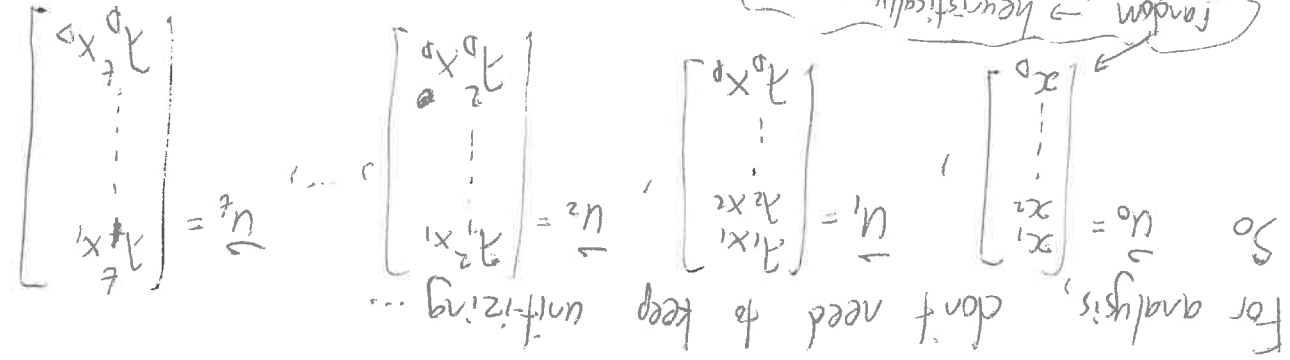 For analysis, don't need to keep unit-izing ...
So u₀ = [x₁ x₂ ⋮ x_D], u₁ = [λ₁x₁ λ₂x₂ ⋮ λ_D x_D], u₂ = [λ₁²x₁ ⋮ λ_D²x_D], ..., u_t = [λ₁ᵗx₁ ⋮ λ_Dᵗx_D]
random → heuristically